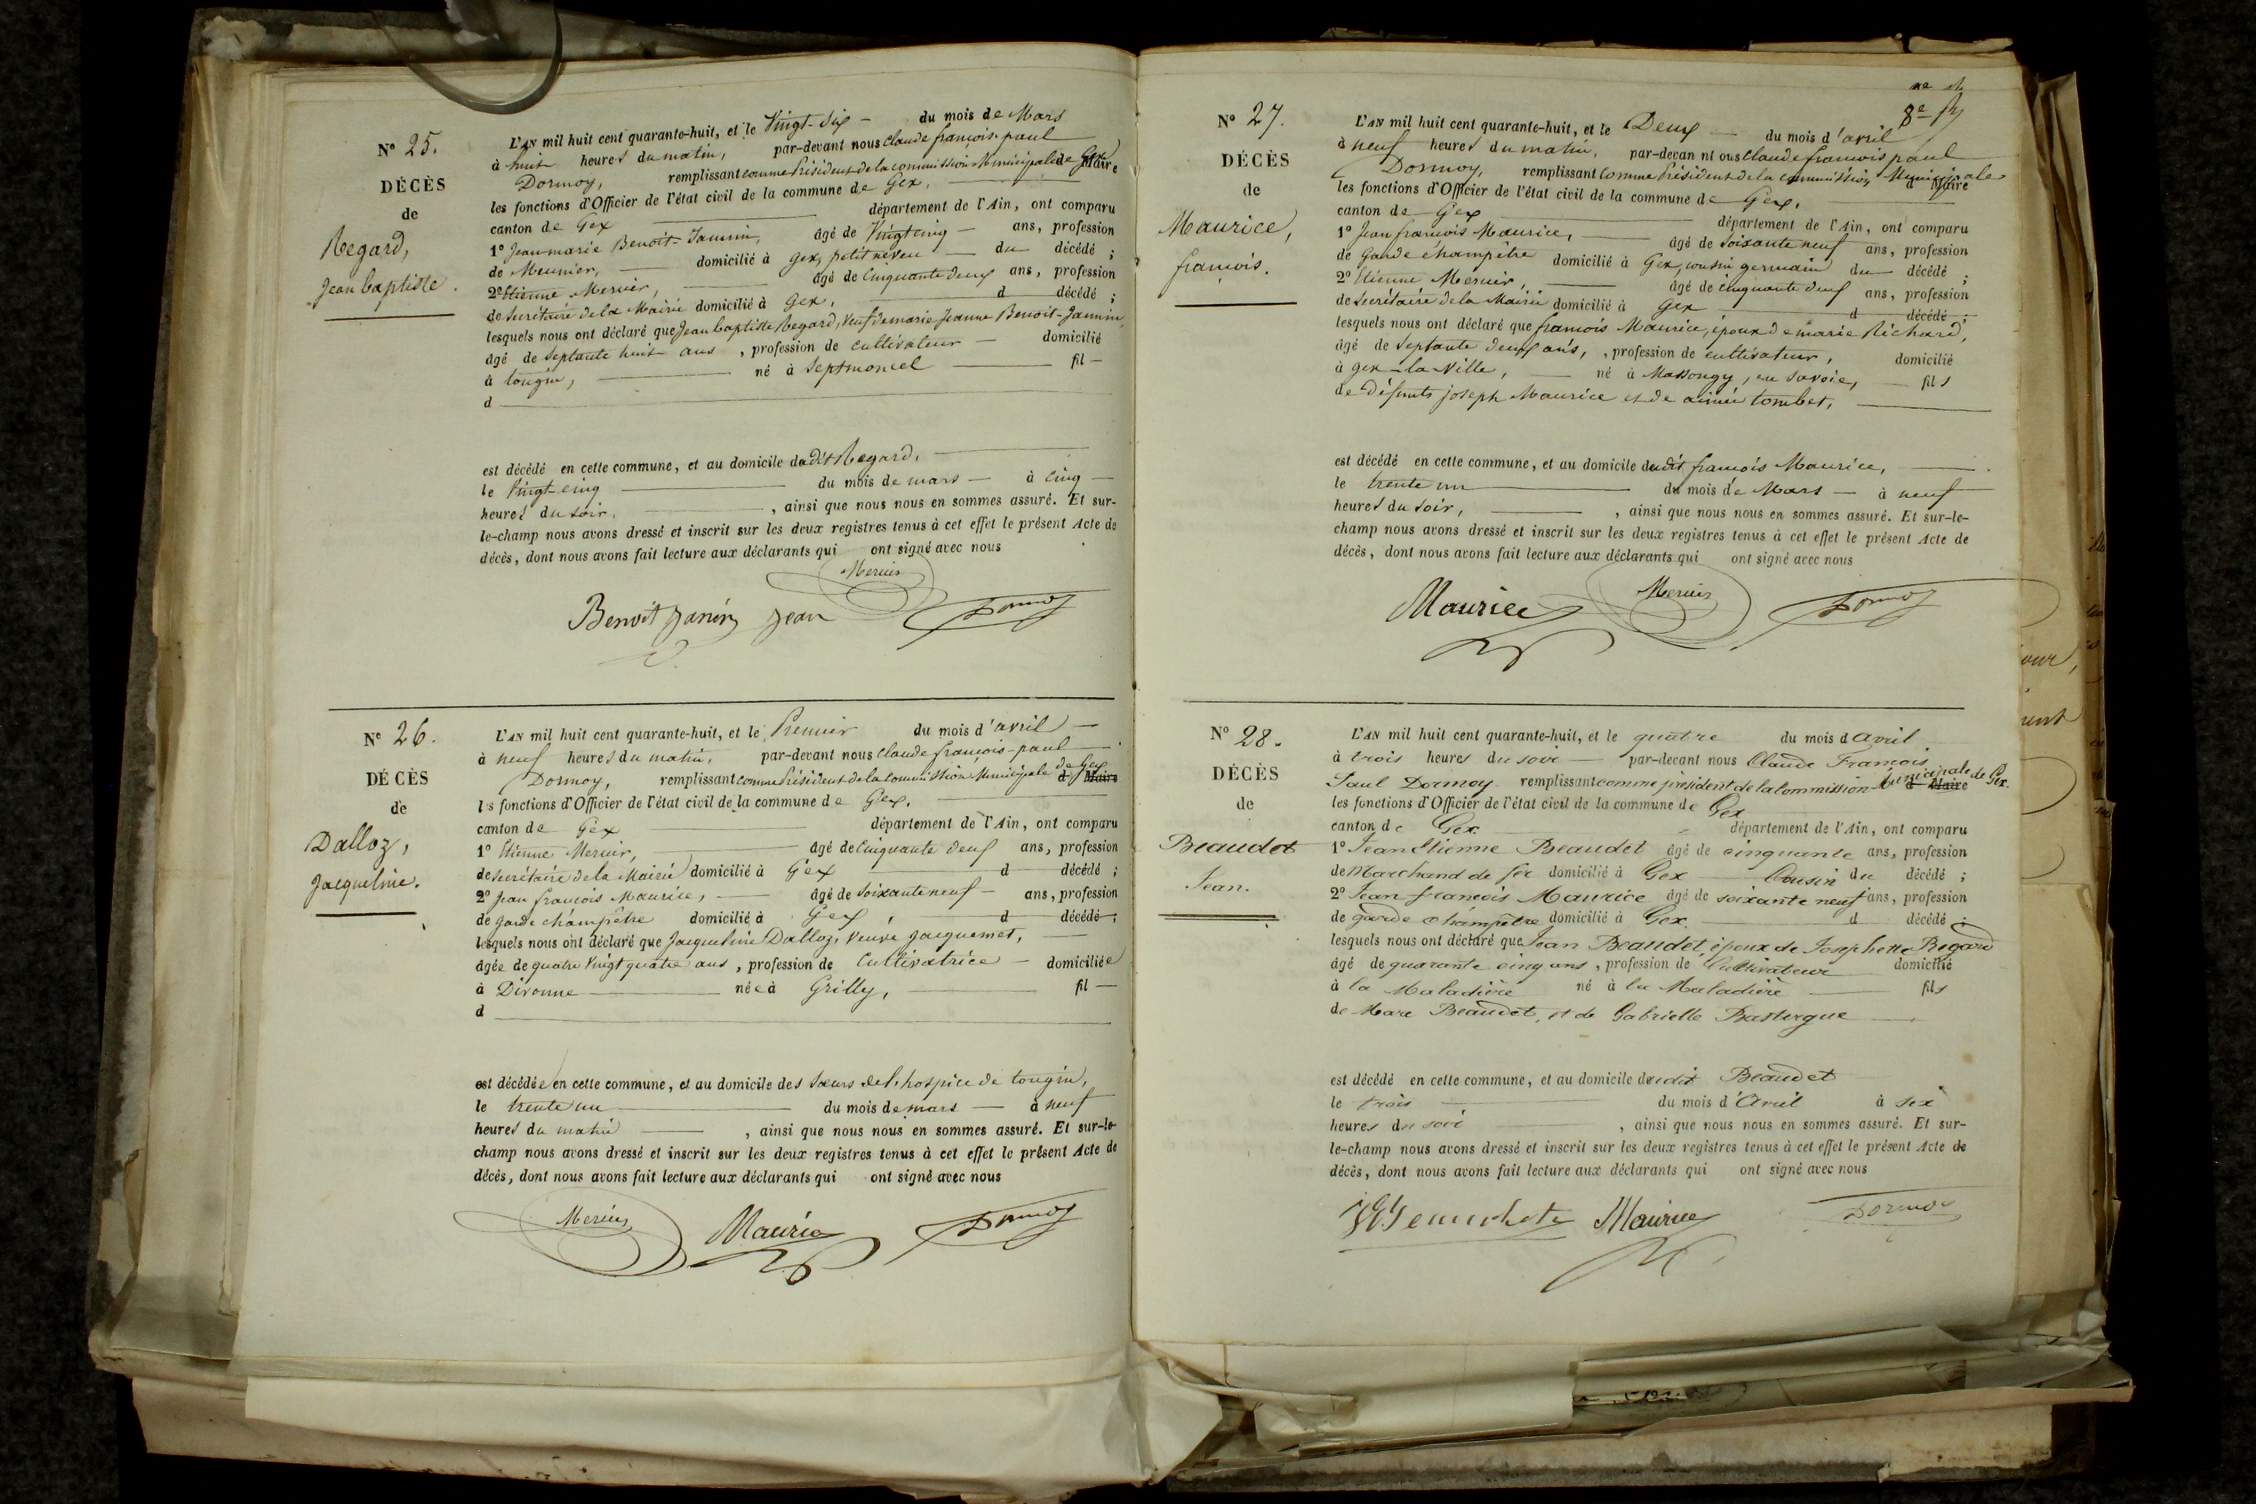 N° 25.
DÉCÈS
de
Regard,
Jean baptiste.
L'AN mil huit cent quarante-huit, et le Vingt-six du mois de Mars
à huit heures du matin, par-devant nous claude françois-paul
Dormoy, remplissant comme Président de la commission Municipale de Gex Maire
les fonctions d'Officier de l'état civil de la commune de Gex,
canton de Gex département de l'Ain, ont comparu
1° Jean marie Benoit-Jannin, âgé de Vingt cinq ans, profession
de Meunier, domicilié à Gex, petit neveu du décédé ;
2° Etienne Mercier, âgé de Cinquante deux ans, profession
de Secrétaire de la Mairie domicilié à Gex, d décédé ;
lesquels nous ont déclaré que Jean baptiste Regard, veuf de marie Jeanne Benoit-Jannin,
âgé de Septante huit ans , profession de cultivateur domicilié
à tougin, né à Septmoncel fil
d
est décédé en cette commune, et au domicile dudit Regard,
le Vingt-cinq du mois de mars à cinq
heures du soir, , ainsi que nous nous en sommes assuré. Et sur-
le-champ nous avons dressé et inscrit sur les deux registres tenus à cet effet le présent Acte de
décès, dont nous avons fait lecture aux déclarants qui ont signé avec nous
Mercier
Benoit janin jean Dormoy
N° 26.
DÉCÈS
de
Dalloz,
Jacqueline.
L'AN mil huit cent quarante-huit, et le Premier du mois d'avril
à neuf heures du matin, par-devant nous claude françois-paul
Dormoy, remplissant comme Président de la commission Municipale de Gex d Maire
les fonctions d'Officier de l'état civil de la commune de Gex,
canton de Gex département de l'Ain, ont comparu
1° Etienne Mercier, âgé de Cinquante deux ans, profession
de secrétaire de la Mairie domicilié à Gex d décédé ;
2° Jean françois Maurice, âgé de soixante neuf ans, profession
de garde champêtre domicilié à Gex, d décédé ;
lesquels nous ont déclaré que Jacqueline Dalloz, veuve jacquemet,
âgée de quatre vingt quatre ans , profession de Cultivatrice domiciliée
à Divonne née à Grilly, fil
d
est décédée en cette commune, et au domicile des sœurs de l'hospice de tougin,
le trente un du mois de mars à neuf
heures du matin , ainsi que nous nous en sommes assuré. Et sur-le-
champ nous avons dressé et inscrit sur les deux registres tenus à cet effet le présent Acte de
décès, dont nous avons fait lecture aux déclarants qui ont signé avec nous
Mercier Maurice Dormoy
8e
N° 27.
DÉCÈS
de
Maurice,
françois.
L'AN mil huit cent quarante-huit, et le Deux du mois d'avril
à neuf heures du matin, par-devan nt ous claude françois paul
Dormoy, remplissant comme Président de la commission Municipale d Maire
les fonctions d'Officier de l'état civil de la commune de Gex,
canton de Gex département de l'Ain, ont comparu
1° Jean françois Maurice, âgé de soixante neuf ans, profession
de Garde champêtre domicilié à Gex, cousin germain du décédé ;
2° Etienne Mercier, âgé de cinquante deux ans, profession
de Secrétaire de la Mairie domicilié à Gex d décédé ;
lesquels nous ont déclaré que françois Maurice, époux de marie Richard,
âgé de septante deux ans, , profession de cultivateur, domicilié
à gex-la-ville, né à Massongy, en savoie, fils
de défunts joseph Maurice et de aimée combet,
est décédé en cette commune, et au domicile dudit françois Maurice,
le trente un du mois de Mars à neuf
heures du soir, , ainsi que nous nous en sommes assuré. Et sur-le-
champ nous avons dressé et inscrit sur les deux registres tenus à cet effet le présent Acte de
décès, dont nous avons fait lecture aux déclarants qui ont signé avec nous
Maurice Mercier Dormoy
N° 28.
DÉCÈS
de
Beaudet
Jean.
L'AN mil huit cent quarante-huit, et le quatre du mois d avril
à trois heures du soir par-devant nous Claude François
Paul Dormoy remplissant comme président de la Commission Municipale de Gex. d Maire
les fonctions d'Officier de l'état civil de la commune de Gex
canton de Gex département de l'Ain, ont comparu
1° Jean Etienne Beaudet âgé de cinquante ans, profession
de Marchand de fer domicilié à Gex Cousin du décédé ;
2° Jean françois Maurice âgé de soixante neuf ans, profession
de garde champêtre domicilié à Gex d décédé ;
lesquels nous ont déclaré que Jean Beaudet, époux de Josephette Regard
âgé de quarante cinq ans , profession de Cultivateur domicilié
à la Maladière né à la Maladière fils
de Marc Beaudet, et de Gabrielle
est décédé en cette commune, et au domicile dudit Beaudet
le trois du mois d'Avril à six
heures du soir , ainsi que nous nous en sommes assuré. Et sur-
le-champ nous avons dressé et inscrit sur les deux registres tenus à cet effet le présent Acte de
décès, dont nous avons fait lecture aux déclarants qui ont signé avec nous
Maurice Dormoy